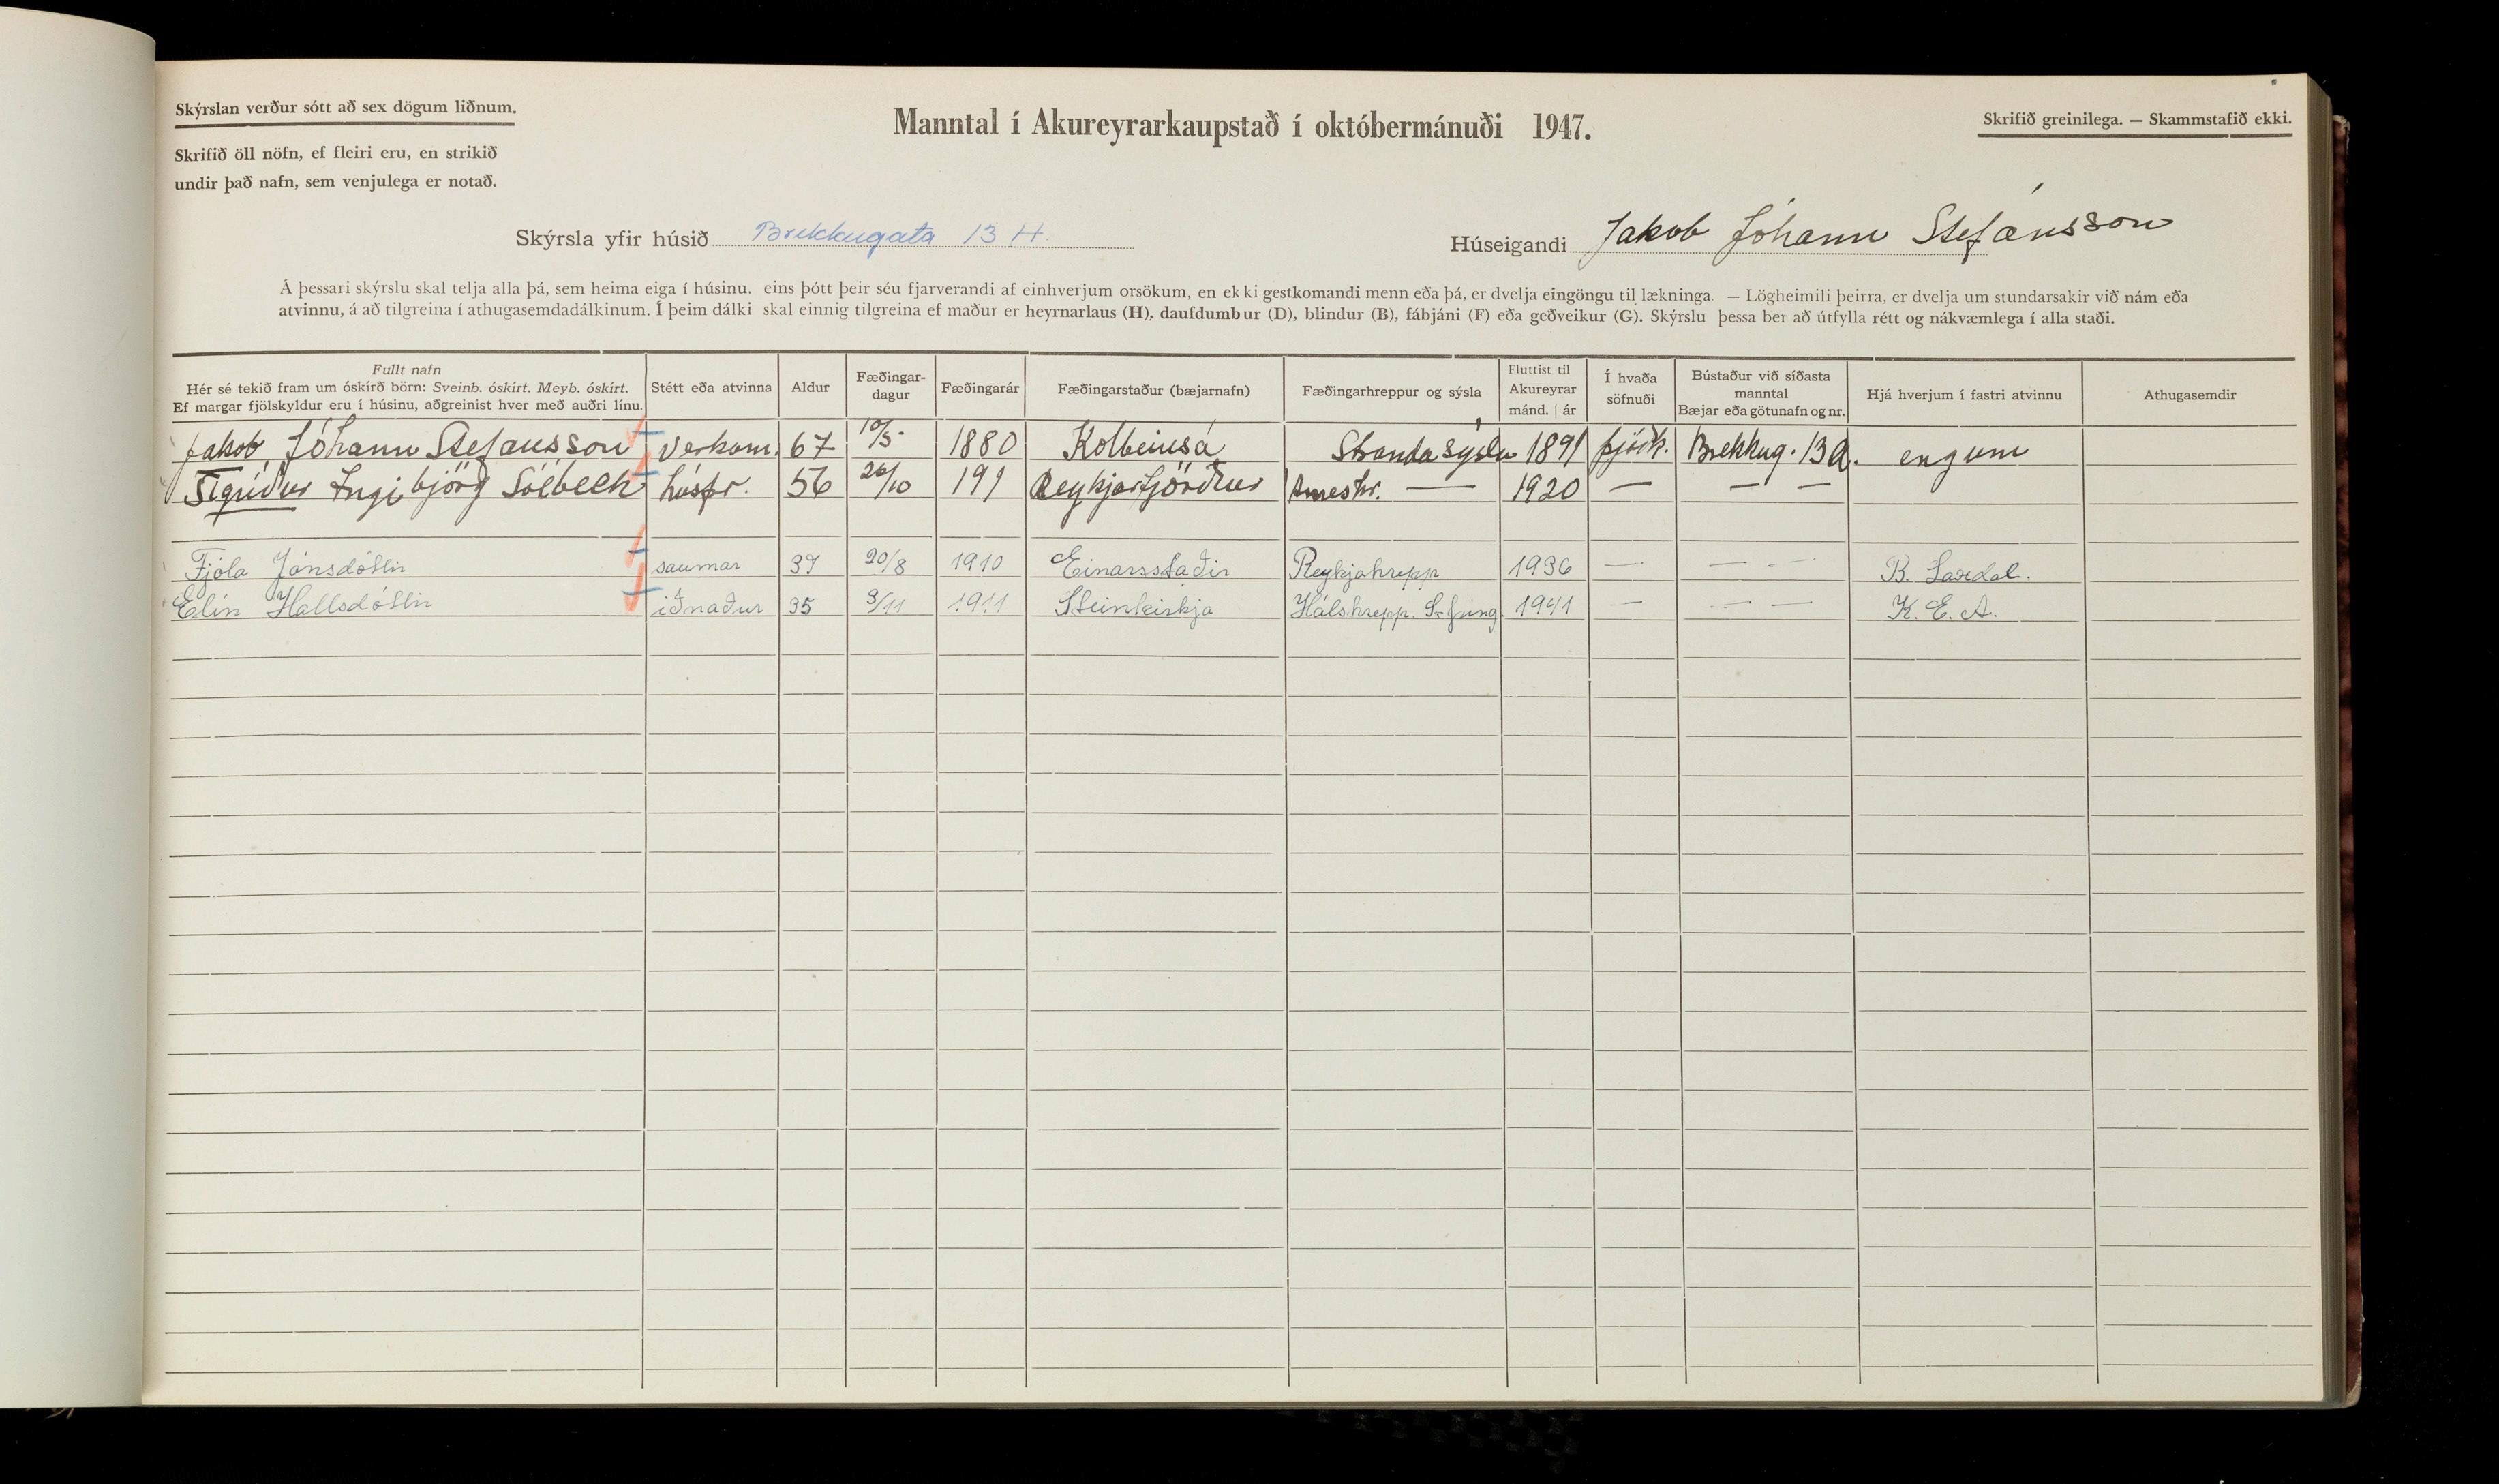 Skýrslan verður sótt að sex dögum liðnum.
Manntal í Akureyrarkaupstað í októbermánuði 1947.
Skrifið greinilega. — Skammstafið ekki.
Skrifið öll nöfn, ef fleiri eru, en strikið
undir það nafn, sem venjulega er notað.
Skýrsla yfir húsið Brekkugata 13 H.
Húseigandi Jakob Jóhann Stefánsson
Á þessari skýrslu skal telja alla þá, sem heima eiga í húsinu, eins þótt þeir séu fjarverandi af einhverjum orsökum, en ekki gestkomandi menn eða þá, er dvelja eingöngu til lækninga. — Lögheimili þeirra, er dvelja um stundarsakir við nám eða
atvinnu, á að tilgreina í athugasemdadálkinum. Í þeim dálki skal einnig tilgreina ef maður er heyrnarlaus (H), daufdumbur (D), blindur (B), fábjáni (F) eða geðveikur (G). Skýrslu þessa ber að útfylla rétt og nákvæmlega í alla staði.
Fullt nafn
Hér sé tekið fram um óskírð börn: Sveinb. óskírt. Meyb. óskírt.
Ef margar fjölskyldur eru í húsinu, aðgreinist hver með auðri línu.
Stétt eða atvinna
Aldur
Fæðingar-
dagur
Fæðingarár
Fæðingarstaður (bæjarnafn)
Fæðingarhreppur og sýsla
Fluttist til
Akureyrar
mánd. | ár
Í hvaða
söfnuði
Bústaður við síðasta
manntal
Bæjar eða götunafn og nr.
Hjá hverjum í fastri atvinnu
Athugasemdir
Jakob Jóhann Stefánsson verkam. 67 10/5 1880 Kolbeinsá Strandasýslu 1891 þjóðk. Brekkug. 13a. engum
Sigríður Ingibjörg Sólbech húsfr. 56 26/10 191 Reykjarfjörður Árneshr. — 1920 — — —
Fjóla Jónsdóttir saumar 37 20/8 1910 Einarsstaðir Reykjahrepp 1936 — — - — B. Laxdal.
Elín Hallsdóttir iðnaður 35 3/11 1911 Steinkirkja Hálshrepp. S-Þing. 1941 — — - — K. E. A.